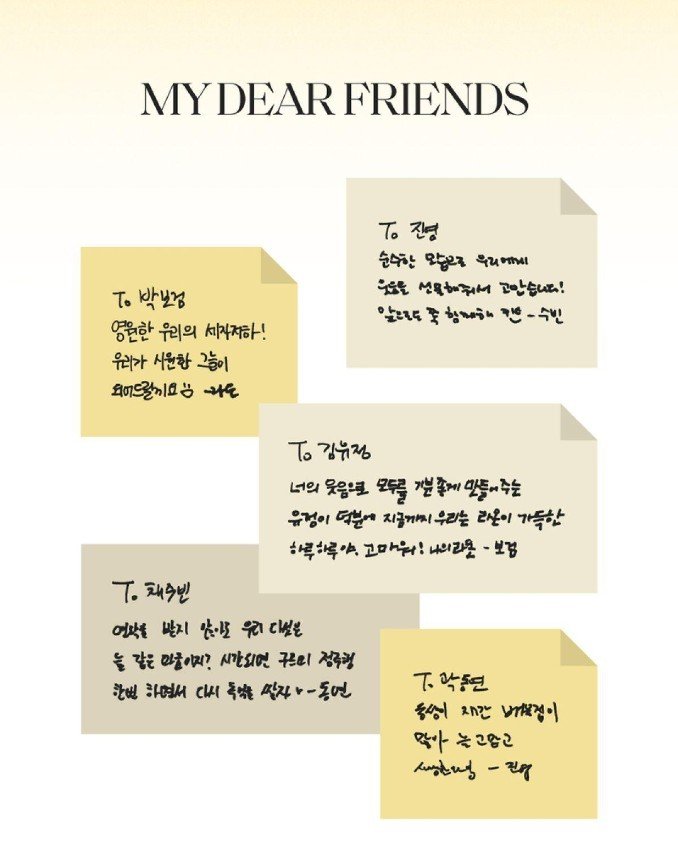 MY DEAR FRIENDS
To 진영
순수한 모습으로 우리에게
웃음을 선물해줘서 고맙습니다!
앞으로도 쭉 함께해 - 수빈
To 박보검
영원한 우리의 세자저하!
우리가 시원한 그늘이
되어드릴게요
To 김유정
너의 웃음으로 모두를 기분 좋게 만들어주는
유정이 덕분에 지금까지 우리는 라온이 가득한
하루하루야. 고마워! 나의 라온 - 보검
To 채수빈
연락을 받지 않아도 우리 다섯은
늘 같은 마음이지? 시간되면 구르미 정주행
한번 하면서 다시 추억을 - 동연
To 곽동연
동생이 지간
많아 늘 고맙고
- 진영